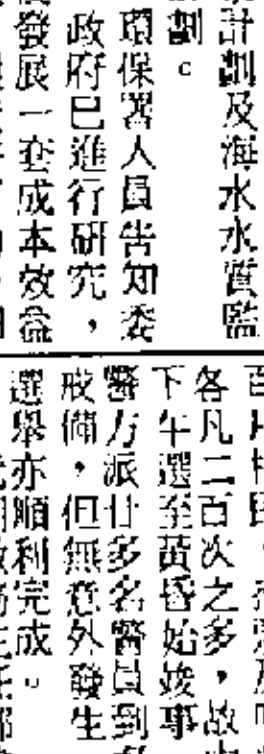 計劃及海水水質監
劃。
環保署人員告知委
政府已進行研究，
發展一套成本效益
各凡二百次之多，故
下午選至黃昏始竣事
警方派廿多名警員到
戒備，但無意外發生
選舉亦順利完成。